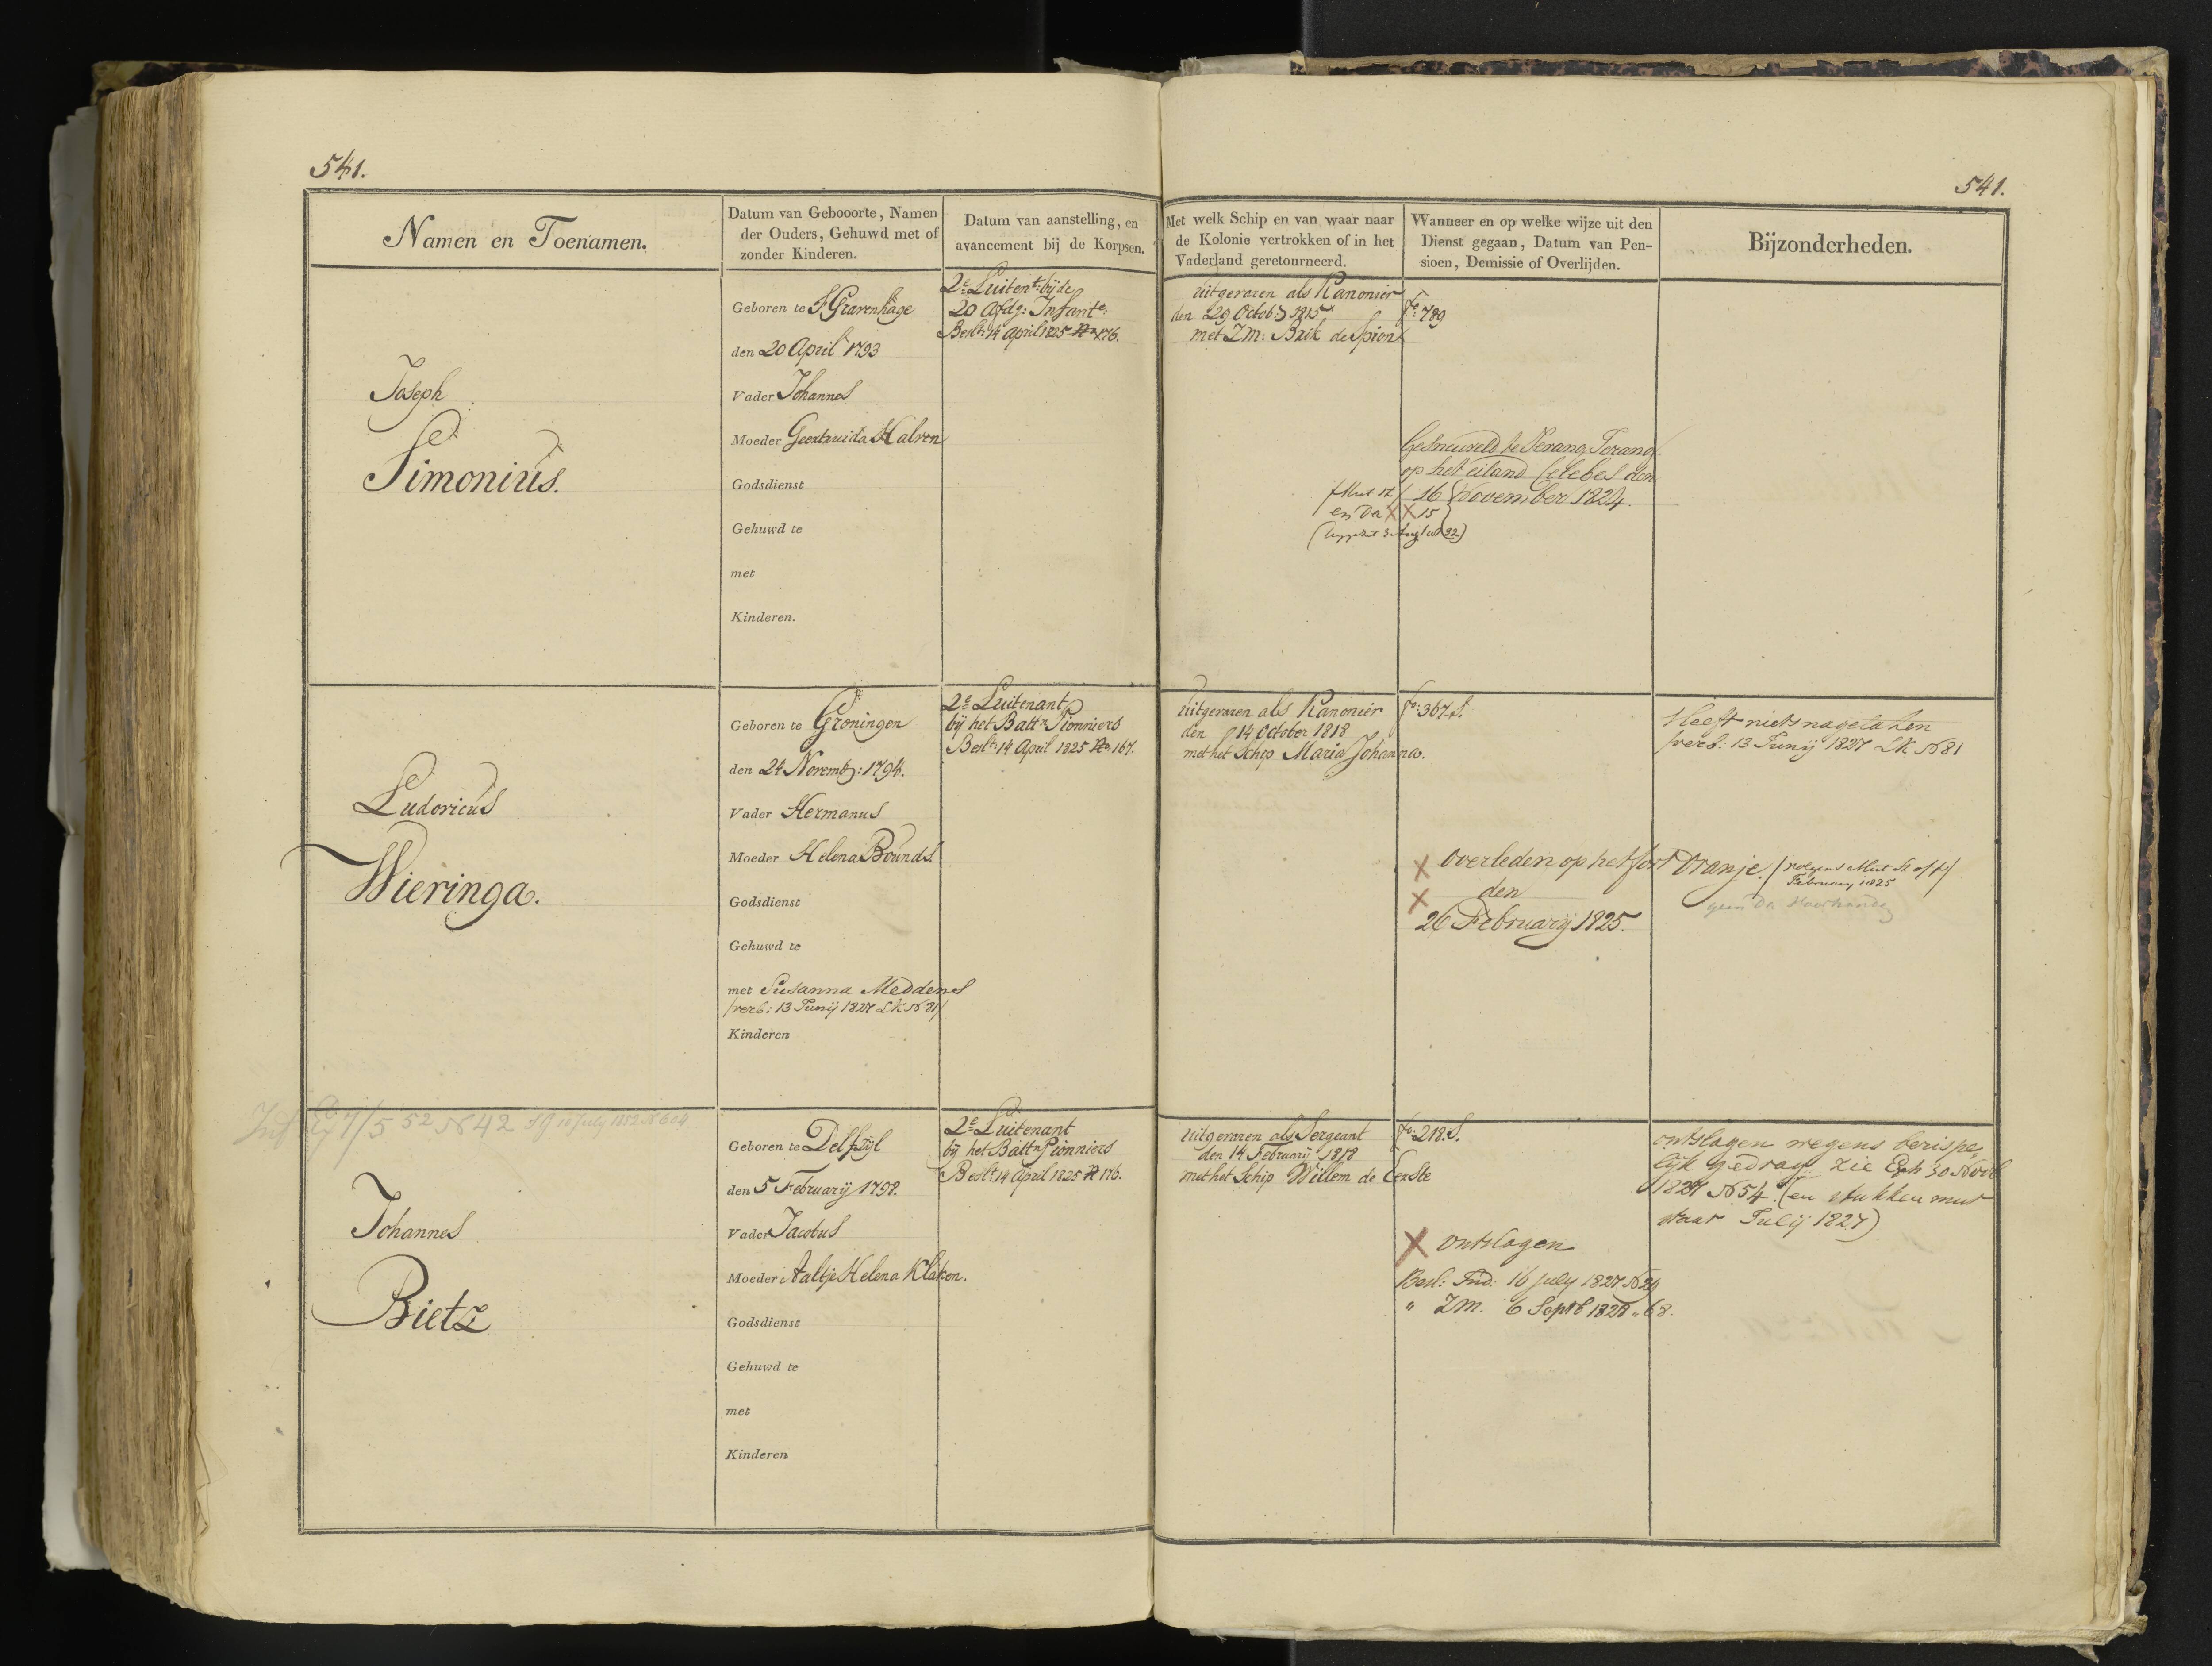 541.
541.
Namen en Toenamen.
Datum van Gebooorte, Namen
der Ouders, Gehuwd met of
zonder Kinderen.
Datum van aanstelling, en
avancement bij de Korpsen.
Met welk Schip en van waar naar
de Kolonie vertrokken of in het
Vaderland geretourneerd.
Wanneer en op welke wijze uit den
Dienst gegaan, Datum van Pen-
sioen, Demissie of Overlijden.
Bijzonderheden.
Joseph
Simonius.
Geboren te S'Gravenhage
den 20 April 1793
Vader Johannes
Moeder Geertruida Halven
Godsdienst
Gehuwd te
met
Kinderen.
2e Luitent: bij de
20 Afdg: Infante:
Beslt: 14 april 1825 No 176.
uitgevaren als Kanonier
den 29 Octob 1815
met ZM: Brik de Spion
fo: 789
Gesneuveld te
op het eiland Celebes den
16 November 1824.
en Da X X 15
Ludovicus
Wieringa.
Geboren te Groningen
den 24 Novemb: 1794.
Vader Hermanus
Moeder Helena Bounds
Godsdienst
Gehuwd te
met Susanna Meddens
/verb: 13 Junij 1827 LK N 81/
Kinderen
2e Luitenant
bij het Battn Pionniers
Beslt: 14 April 1825 No 167.
Uitgevaren als Kanonier
den 14 October 1818
met het Schip Maria Johanna.
fo: 367. S.
Heeft niets nagelaten
/verb: 13 Junij 1827 LK N 81
X overleden op het fort Oranje. /volgens Mut St off/
February 1825
X den
26 Februarij 1825.
geen Da voorhanden
7/5 52 N 42
Johannes
Bietz
Geboren te Delfzijl
den 5 Februarij 1798.
Vader Jacobus
Moeder Aaltje Helena Klaten.
Godsdienst
Gehuwd te
met
Kinderen
2e Luitenant
bij het Battn Pionniers
Beslt: 14 April 1825 N 176.
uitgevaren als Sergeant
den 14 Februarij 1818
met het Schip Willem de Eerste
fo: 218. S.
X ontslagen
Besl: Ind: 16 july 1827 N 20
" ZM. 6 Septb 1828 " 68.
ontslagen wegens berispe„
lijk gedrag. Zie Exh 30 Novb
1827 N 54. (en stukken mut
staat Julij 1827)